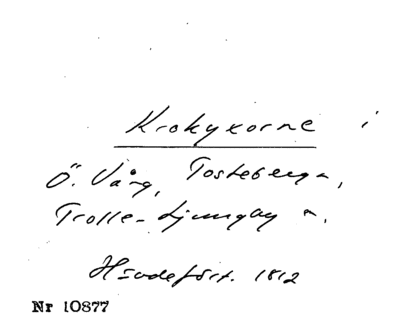 Krokyxorne i
Ö. Vång, Tosteberga,
Trolle-Ljungby m.
Hsvdefört. 1812
Nr 10877